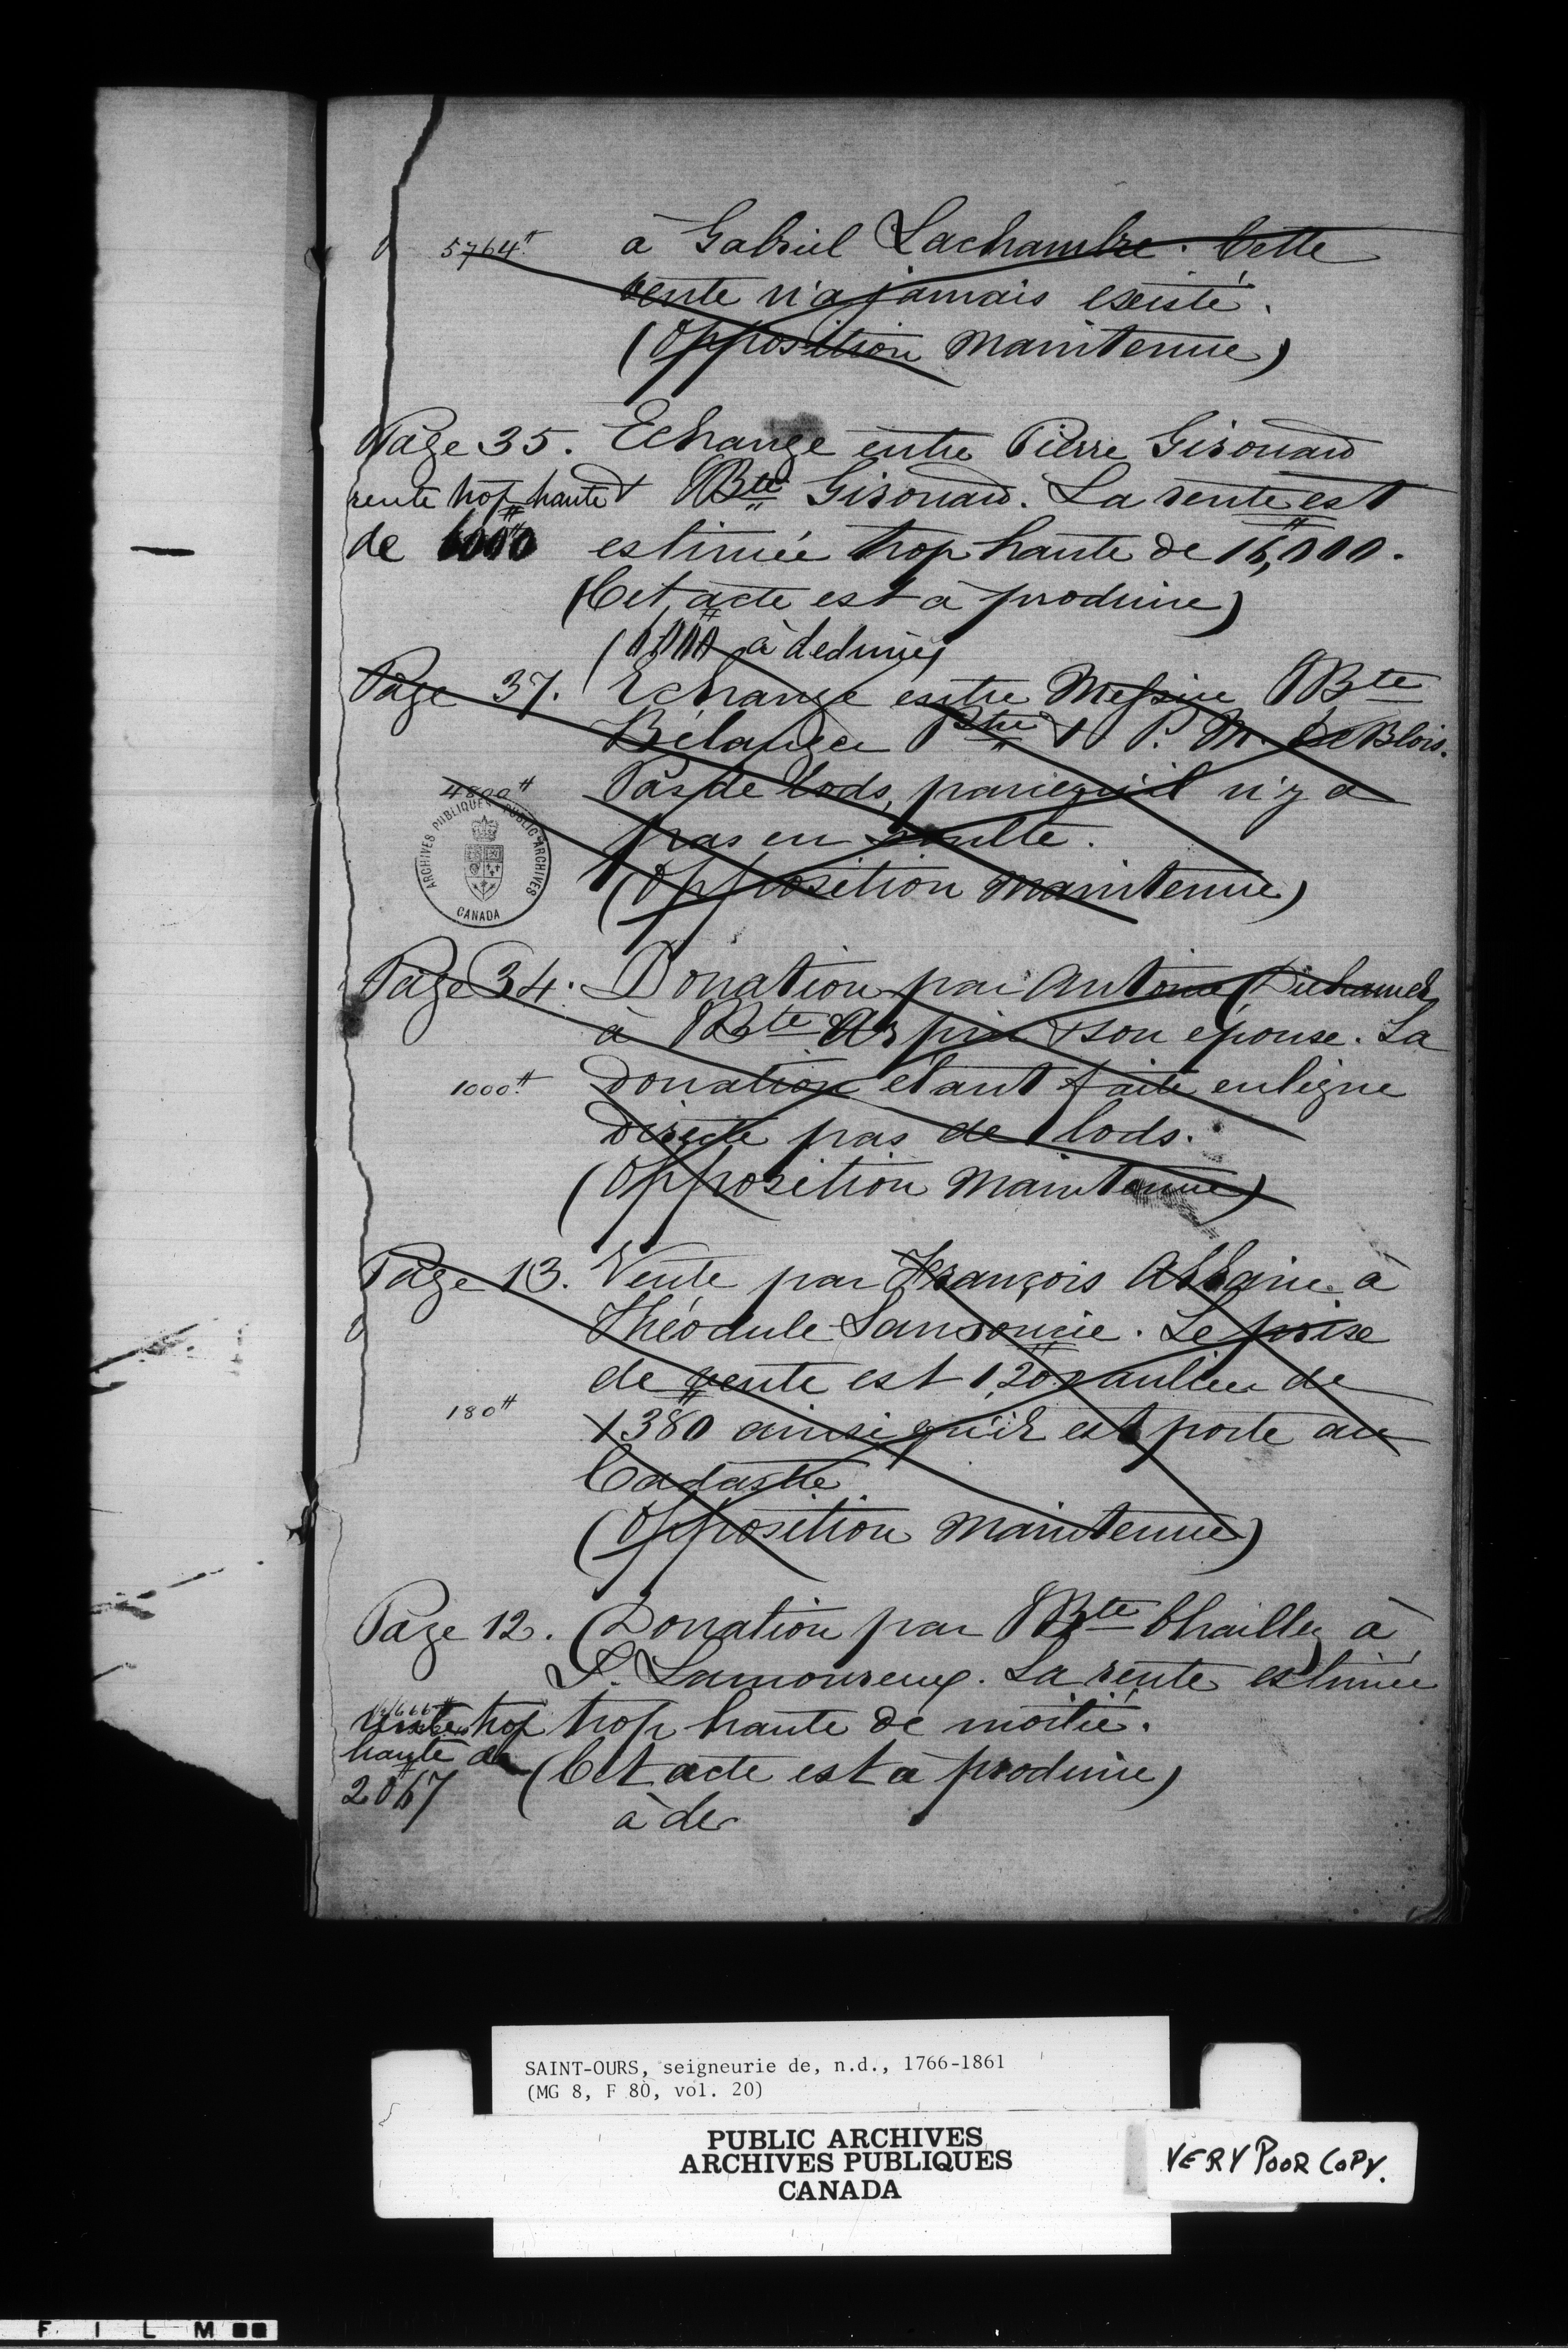 5764# à Gabriel Lachambre. Cette
vente n'a jamais existé.
(Opposition Maintenue)
Page 35. Echange entre Pierre Girouard
rente trop haute & JBte Girouard. La rente est
de 6000# estimée trop haute de 16,000.
(Cet acte est à produire)
à deduire
Page 37. Echange entre Messire JBte
Bélanger Ptre & P. M. de Blois.
4800# Pas de lods, parcequ'il n'y a
pas eu soulte.
(Opposition Maintenue)
ARCHIVES PUBLIQUES PUBLIC ARCHIVES
CANADA
Page 34. Donation par Antoine
à JBte & son épouse. La
1000# donation étant faite en ligne
directe pas de lods.
(Opposition Maintenue)
Page 13. Vente par François Allaire à
Théodule Sansoucie. Le prix
de vente est 1,200 aulieu de
180# 1380 ainsi qu'il est porte au
Cadastre
(Opposition Maintenue)
Page 12. Donation par JBte Chailley à
L. Lamoureux. La rente estimée
rente trop trop haute de moitié.
haute de (Cet acte est à produire)
2067
à de
SAINT-OURS, seigneurie de, n.d., 1766-1861
(MG 8, F 80, vol. 20)
PUBLIC ARCHIVES
ARCHIVES PUBLIQUES
CANADA
VERY POOR COPY.
FILM